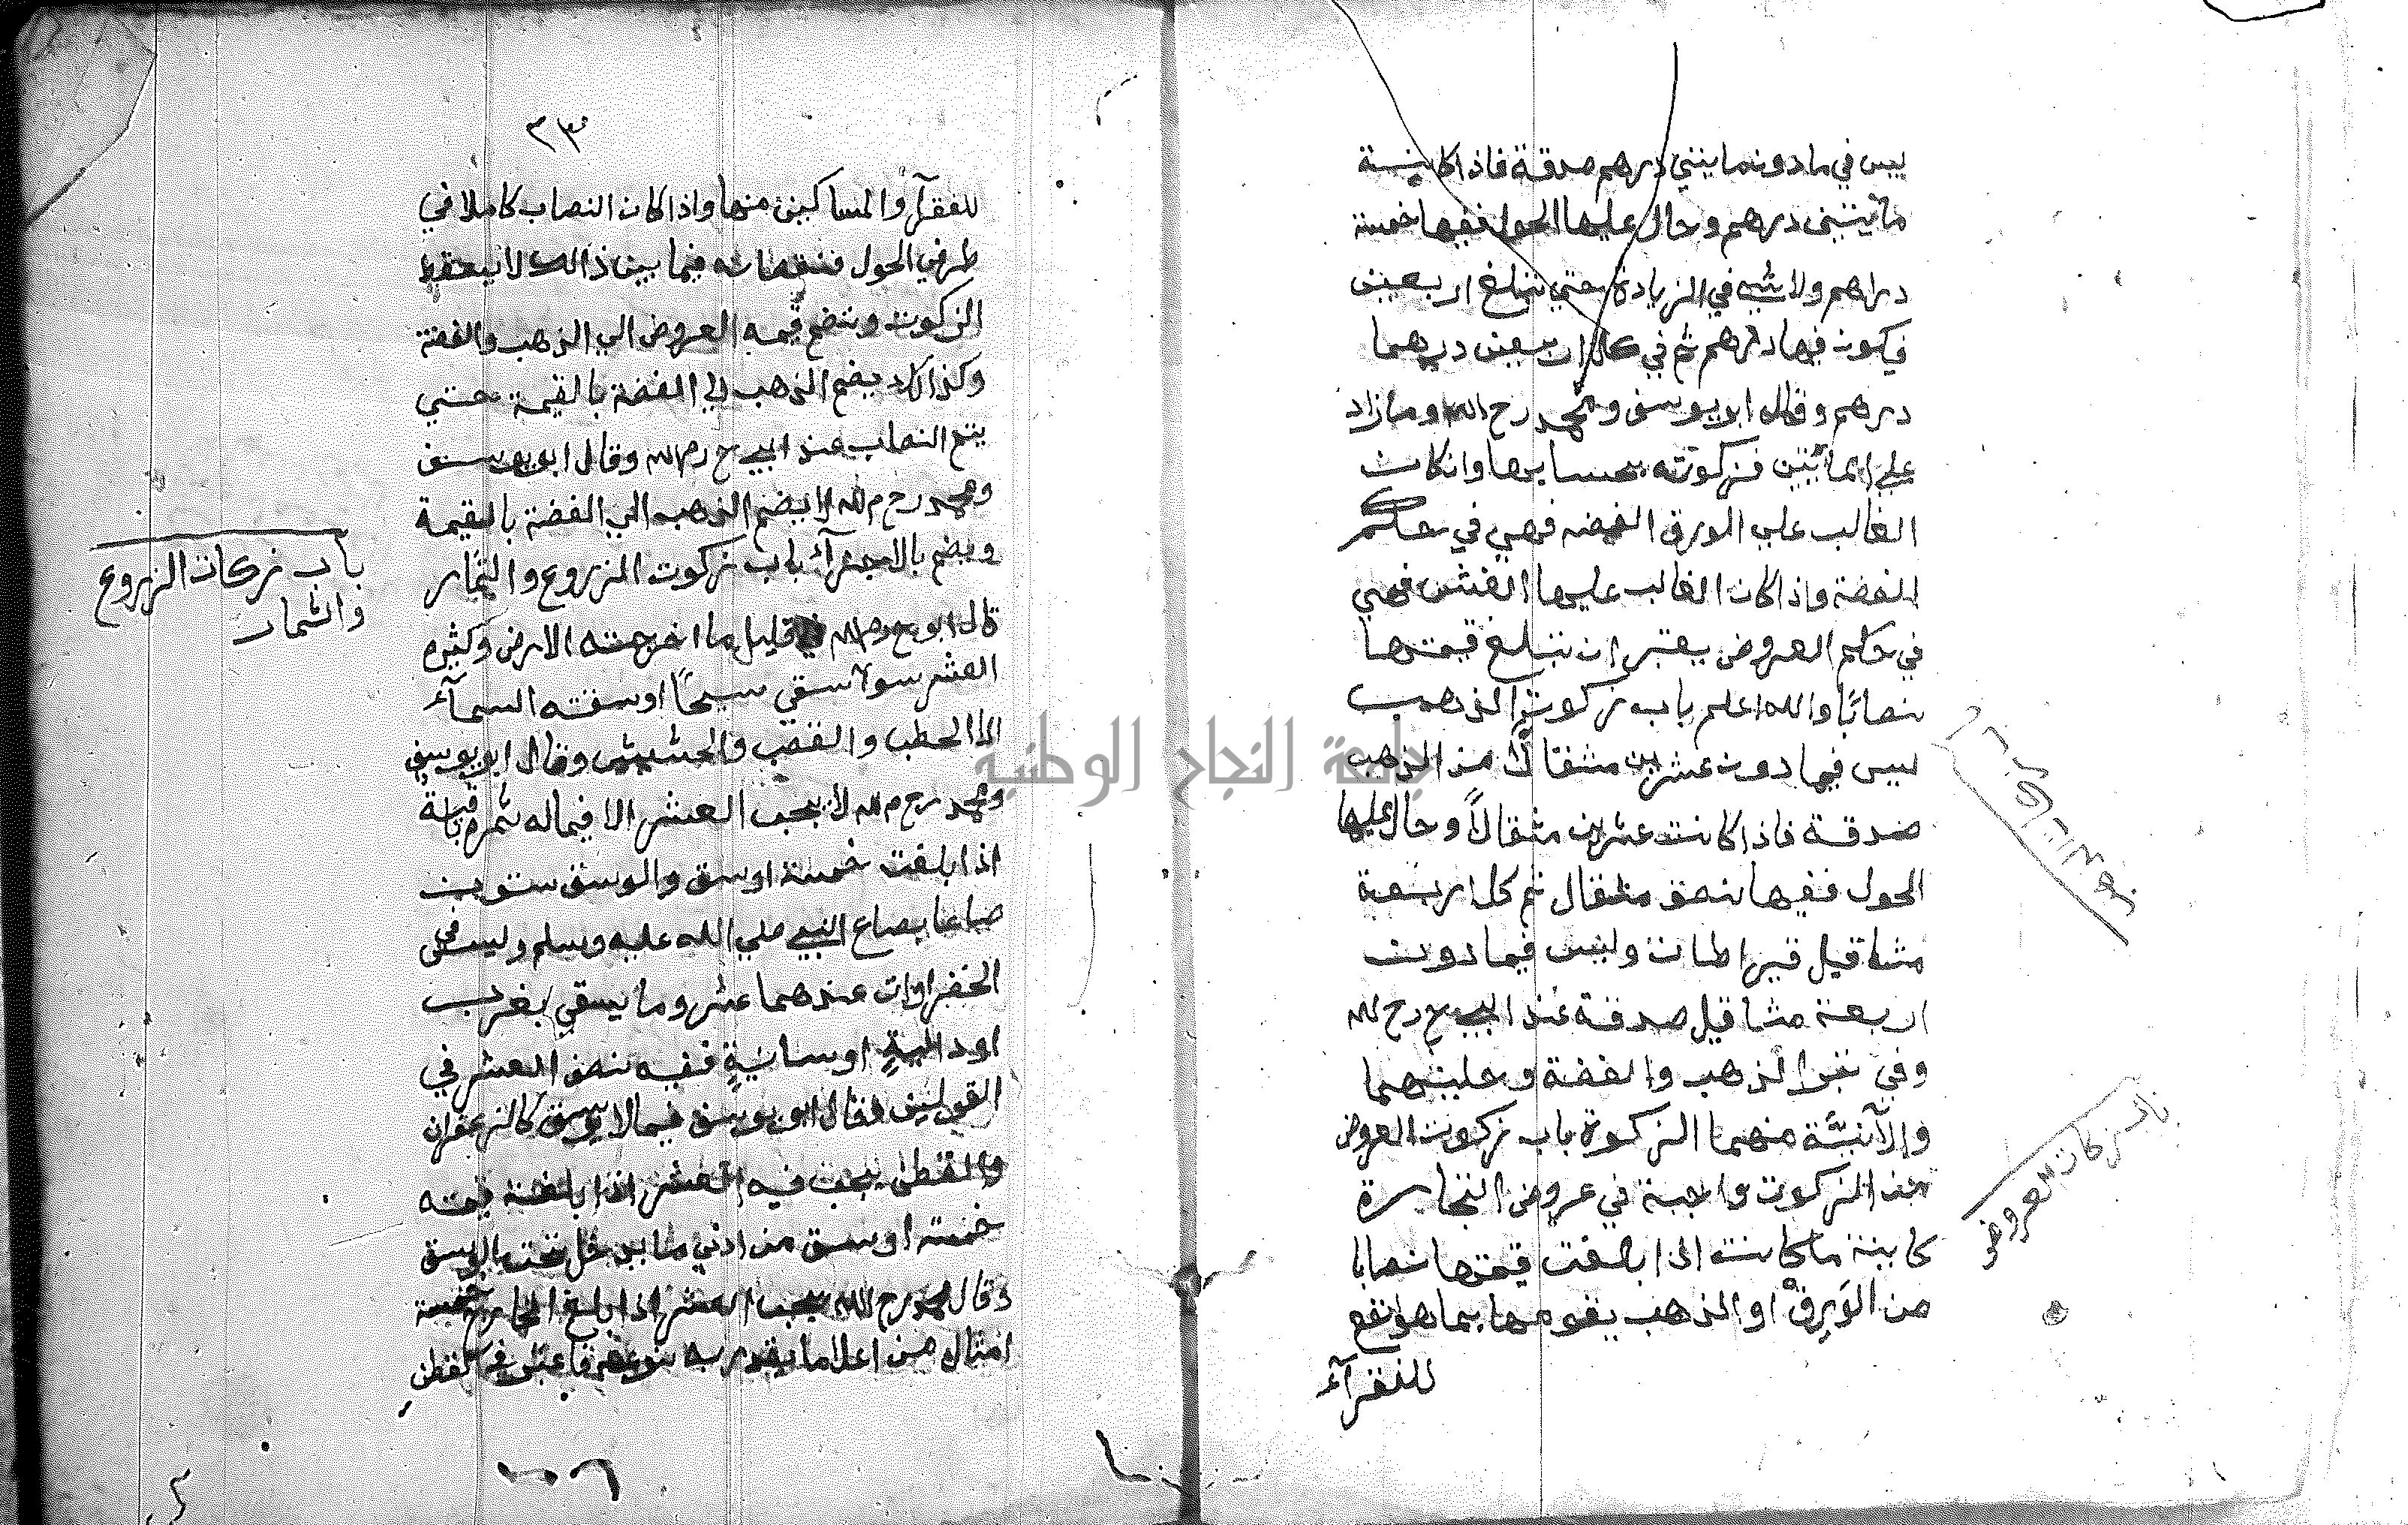 ليس في ما دون مايتني درهم صدقة فاذا كانت
مأيتيني درهم وحال عليها الحول ففيها خمسة
دراهم ولا شيء في الزيادة حتي تبلغ اربعين
فيكون فيها درهم ثم في كل اربعين درهما
درهم وقال ابو يوسف ومحمد رح الله وما زاد
علي المأيتين فزكوته بحسابها وانكان
الغالب علي الورق الفضه فهي في حكم
الفضة واذا كان الغالب عليها الغش فهي
في حكم العروض يعتبر ان تبلغ قيمتها
نصابًا والله اعلم باب زكوت الذهب
ليس فيما دون عشرين مثقالًا من الذهب
صدقة فاذا كانت عشرين مثقالًا وحال عليها
الحول ففيها نصف مثقال ثم كل اربعة
مثاقيل قيراطان وليس فيما دون
اربعة مثاقيل صدقة عند ابي ح رح لله
وفي تبر الذهب والفضة وحليهما
والآنية منهما الزكوة باب زكوت العروض
الزكوت واجبة في عروض التجارة
كاينة ما كانت اذا بلغت قيمتها نصابا
من الوَرِقْ او الذهب يقومها بما هو انفع
للفقرآء
باب زكات الذهب
باب زكات العروض
٢٣
للفقرآء والمساكين منها واذا كان النصاب كاملا في
طرفي الحول فنقصانه فيما بين ذالك لا يسقط
الزكوت وتضم قيمه العروض الي الذهب والفضة
وكذالك يضم الذهب الي الفضة بالقيمة حتي
يتم النصاب عند ابي ح رح الله وقال ابو يوسف
ومحمد رح م الله لا يضم الذهب الي الفضة بالقيمة
ويضم بالاجزآء باب زكوت الزروع والثمار
قال ابو ح رح الله في قليل ما اخرجته الارض وكثيره
العشر سوآء سقي سيحًا او سقته السمآء
الا الحطب والقصب والحشيش وقال ابو يوسف
ومحمد رح م الله لا يجب العشر الا فيما له ثمرة باقية
اذا بلغت خمسة اوسق والوسق ستون
صاعا بصاع النبي صلي الله عليه وسلم وليس في
الخضراوات عندهما عشر وما يسقي بغرب
او دالية او سانيةٍ ففيه نصف العشر في
القولين فقال ابو يوسف فيما لا يوسق كالزعفران
والقطن يجب فيه العشر اذا بلغت قيمته
خمسة اوسق من ادني ما يدخل تحت الوسق
وقال محمد رح الله يجب العشر اذا بلغ الخارج خمسة
امثال من اعلا ما يقدر به نوعه فاعتبر في القطن
باب زكات الزروع
والثمار
جامعة النجاح الوطنية